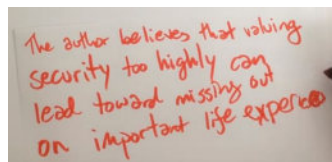 The author believes that valuing
security too highly can
lead toward missing out
on important life